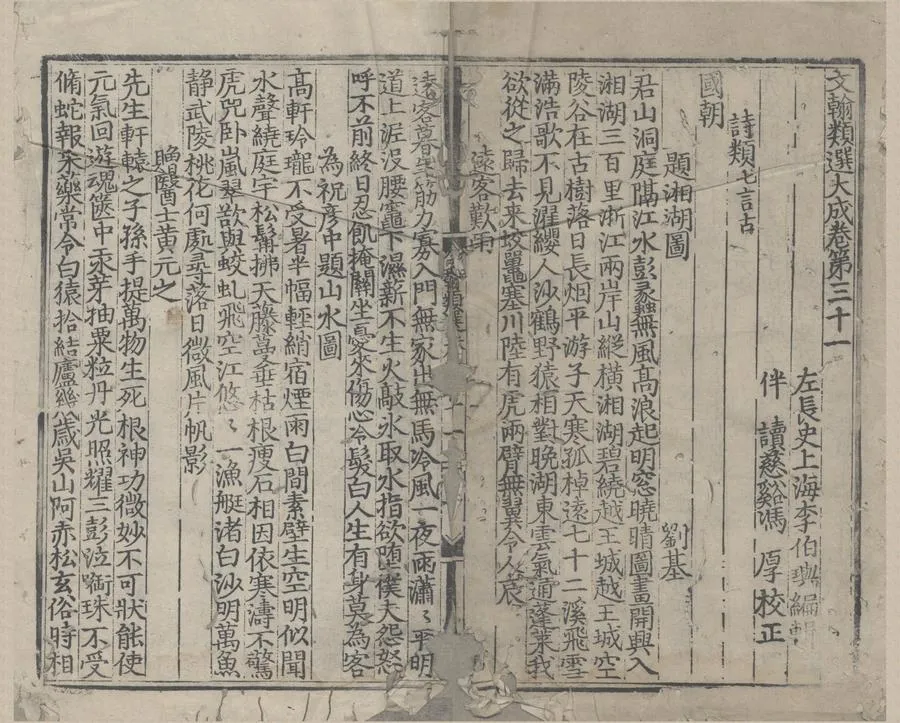 文翰類選大成卷第三十一
左長史上海李伯璵編輯
伴讀慈谿馮厚校正
詩類七言古
國朝
題湘湖圖 劉基
君山洞庭隔江水彭蠡無風高浪起明窓曉晴圖畫開興入
湘湖三百里浙江兩岸山縱橫湘湖碧繞越王城越王城空
陵谷在古樹落日長烟平游子天寒孤棹遠七十二溪飛雪
滿浩歌不見濯纓人沙鶴野猿相對晚湖東雲氣通蓬萊我
欲從之歸去來蛟鼉塞川陸有虎兩臂無翼令人哀
遠客歎
遠客暮筋力寡入門無家出無馬冷風一夜雨瀟〻平明
道上泥没腰竈下濕薪不生火敲氷取水指欲堕僕夫怨怒
呼不前終日忍飢掩關坐憂來傷心冷髮白人生有身莫為客
為祝彥中題山水圖
高軒玲瓏不受暑半幅輕綃宿煙雨白間素壁生空明似聞
水聲繞庭宇松髯拂天藤蔓垂枯根瘦石相因依寒濤不驚
虎兕卧嵐翠欲與蛟虬飛空江悠〻一漁艇渚白沙明萬魚
静武陵桃花何處尋落日微風片帆影
贈醫士黄元之
先生軒轅之子孫手提萬物生死根神功微妙不可狀能使
元氣回遊魂篋中汞芽抽粟粒丹光照耀三彭泣銜珠不受
脩蛇報采藥常令白猿拾結廬幾歲吳山阿赤松玄俗時相